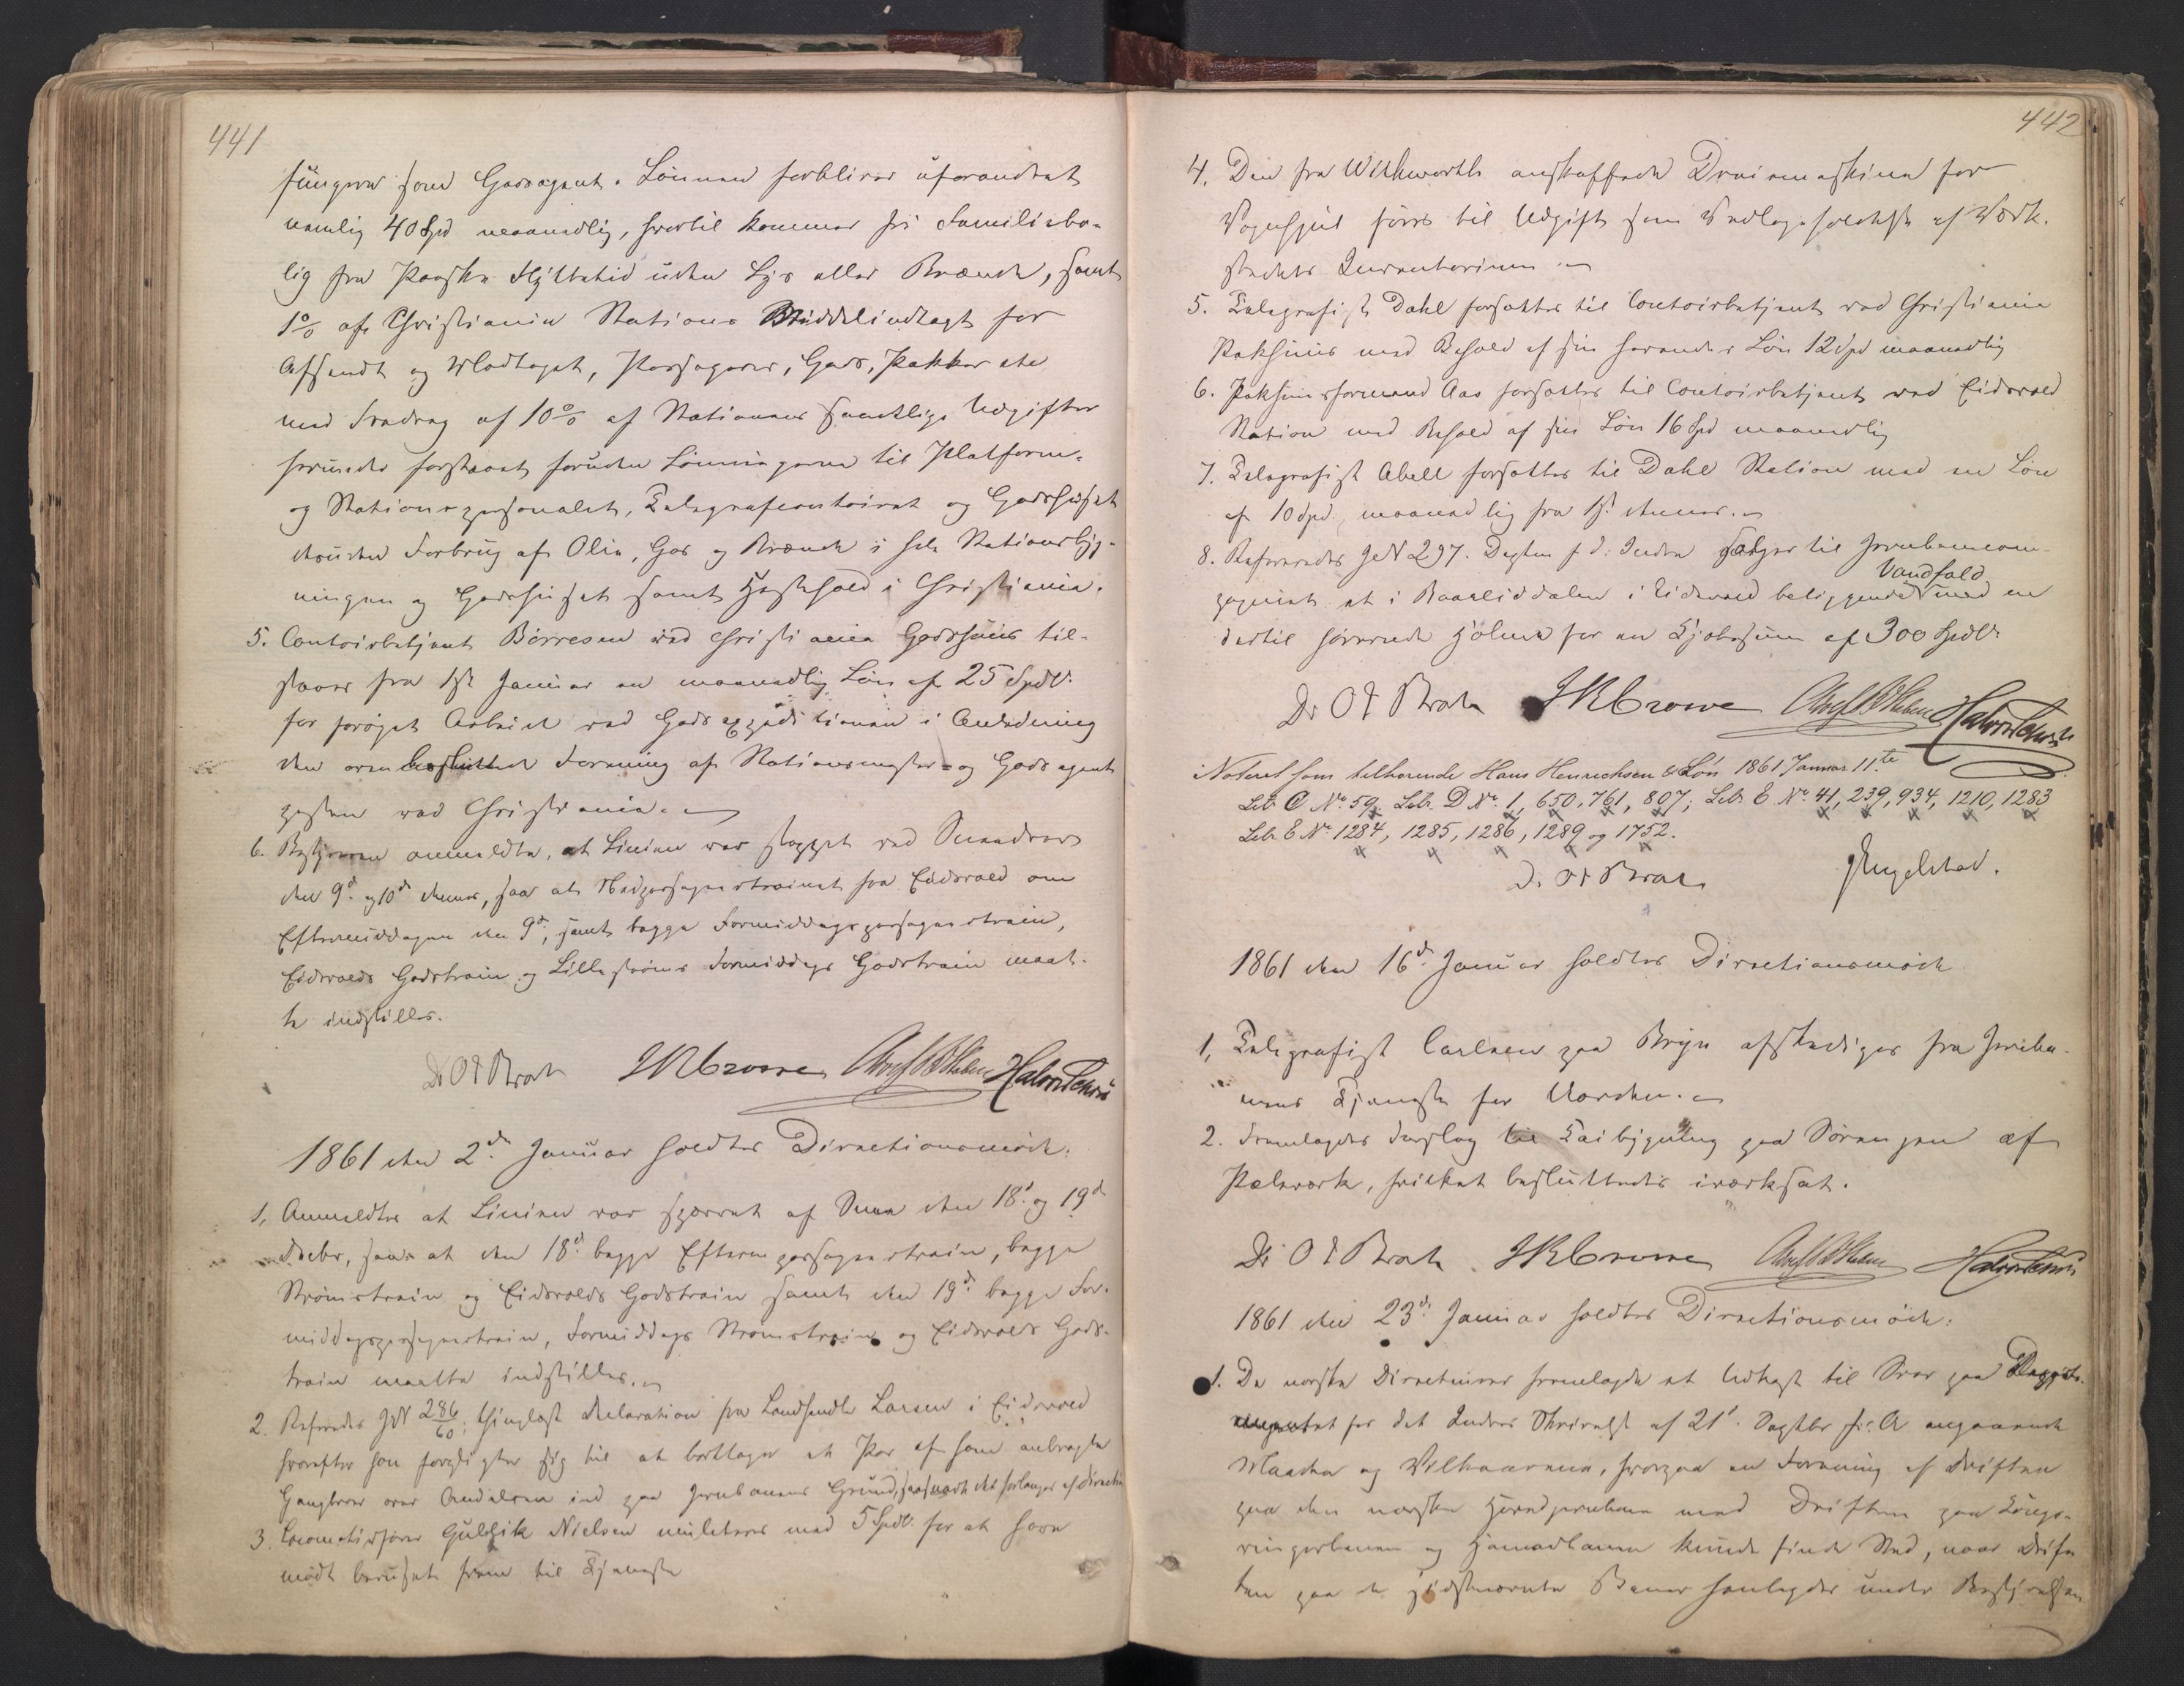 441
fungerer som Godsagent. Lønnen forbliver uforandret
nemlig 40 Spd maanedlig, hvortil kommer fri Familiebo-
lig fra Paaske Flyttetid uden Lys eller Brænde, samt
1% af Christiania Stations Middelindtægt for
Afsendt og Modtaget, Passagerer, Gods, Pakker etc
med Fradrag af 10% af Stationens samtlige Udgifter
herunder forstaaet foruden Lønningerne til Platform-
og Stationspersonalet, Telegrafcontoiret og Godshuset
desuden Forbrug af Olie, Gas og Brænde i hele Stationsbyg-
ningen og Godshuset samt Hestehold i Christiania.
5. Contoirbetjent Børresen ved Christiania Godshuus til-
staaes fra 1ste Januar en maanedlig Løn af 25 Spdl.
for forøget Arbeide ved Godsexpeditionen i Anledning
den oven besluttede Forening af Stationsmester- og Godsagent
posten ved Christiania.
6. Bestyreren anmeldte, at Linien var stoppet ved Sneedrev
den 9d og 10d dennes, saa at Nedpassagertrainet fra Eidsvold om
Eftermiddagen den 9d, samt begge Formiddagspassagertrain,
Eidsvolds Godstrain og Lillestrøms Formiddags Godstrain maat-
te indstilles.
Dr O J Broch JRCrowe Halvor Schou
1861 den 2den Januar holdtes Directionsmøde.
1, Anmeldtes at Linien var spærret af Snee den 18d og 19d
Decbr, saa at den 18d begge Efterm passagertrain, begge
Strømstrain og Eidsvolds Godstrain samt den 19d begge For-
middagspassagertrain, Formiddags Strømstrain og Eidsvolds Gods-
train maatte indstilles.
2. Refereredes JN 286/60; thinglæst Declaration fra Landhandler Larsen i Eidsvold
hvorefter han forpligter sig til at borttage et Par af ham anbragte
Gangbroer over Andelven ind paa Jernbanens Grund, saasnart det forlanges af Direction
3. Locomotivfører Gulbrik Nielsen mulcteres med 5 Spdl. for at have
mødt beruset frem til Tjeneste
442
4. Den fra Withworth anskaffede Dreiemaskine for
Vognhjul føres til Udgift som Vedligeholdelse af Værk-
stedets Inventarium.
5. Telegrafist Dahl forsættes til Contoirbetjent ved Christiania
Pakhuus med Behold af sin havende Løn 12 Spd maanedlig
6. Pakhuusformand Aas forsættes til Contoirbetjent ved Eidsvold
Station med Behold af sin Løn 16 Spd maanedlig
7. Telegrafist Abell forsættes til Dahl Station med en Løn
af 10 Spd. maanedlig fra 1st dennes.
8. Refereredes JN 297. Depten f. d. Indre sælger til Jernbanecom-
pagniet et i Baaliddalen i Eidsvold beliggende Vandfald med en
dertil hørende Hølme for en Kjøbesum af 300 Spdlr
Dr O J Broch JRCrowe Halvor Schou
Noteret som tilhørende Hans Henrichsen & Søn 1861 Januar 11te
Letr C No 59. Letr. D No. 1, 650, 761, 807; Letr. E No. 41, 239, 934, 1210, 1283
Letr E No 1284, 1285, 1286, 1289 og 1752.
Dr O J Broch Engelstad.
1861 den 16d Januar holdtes Directionsmøde
1, Telegrafist Carlsen paa Bryn afskediges fra Jernba-
nens Tjeneste for Uorden.
2. Fremlagdes Forslag til Kaibygning paa Sørengen af
Pæleværk, hvilket besluttedes iværksat.
Dr O J Broch JRCrowe Halvor Schou
1861 den 23d Januar holdtes Directionsmøde.
1. De norske Directeurer fremlagde et Udkast til Svar paa Departe-
mentet for det Indres Skrivelse af 21d Septbr f: A angaaende
Maaden og Vilkaarene, hvorpaa en Forening af Driften
paa den norske Hovedjernbane med Driften paa Kongs-
vingerbanen og Hamarbanen kunde finde Sted, naar Drif-
ten paa de sidstnævnte Baner henlagdes under Bestyrelsen